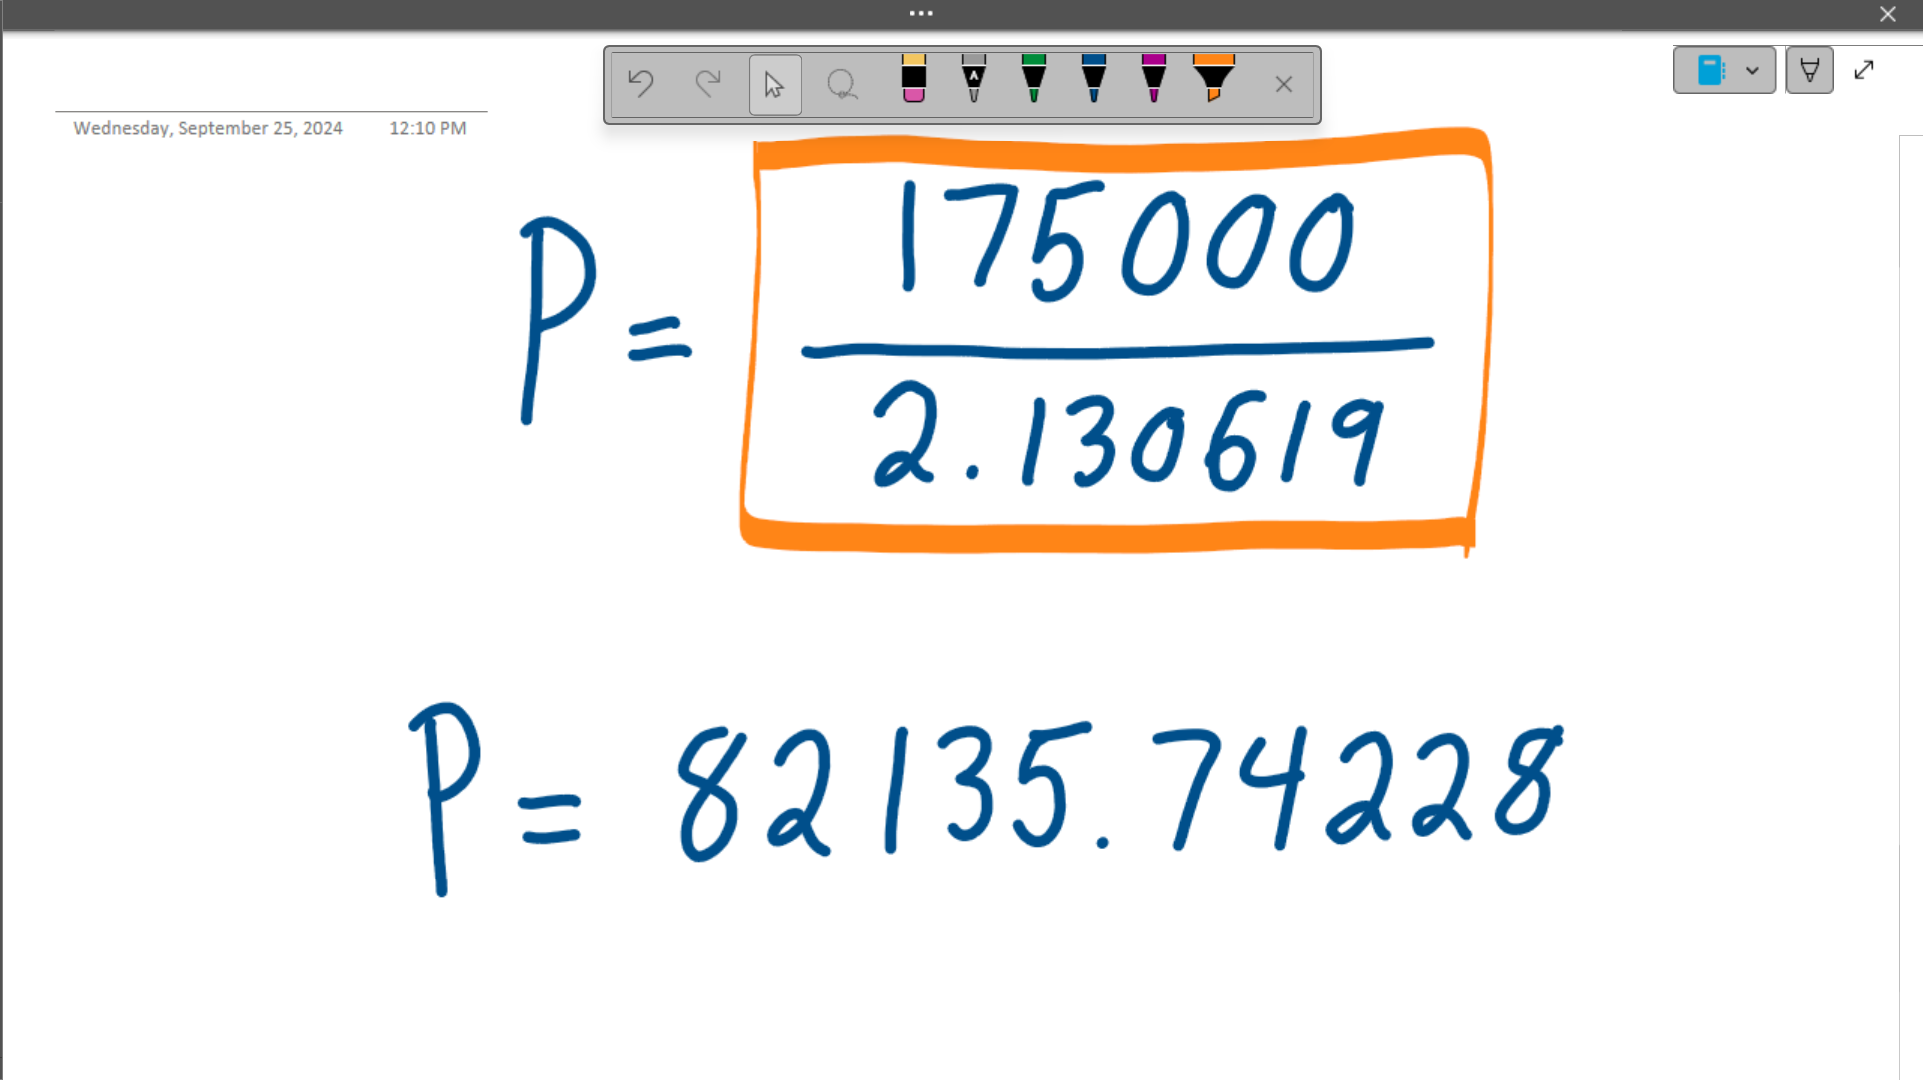 Wednesday, September 25, 2024 12:10 PM
P = 175000
2.130619
P = 82135.74228